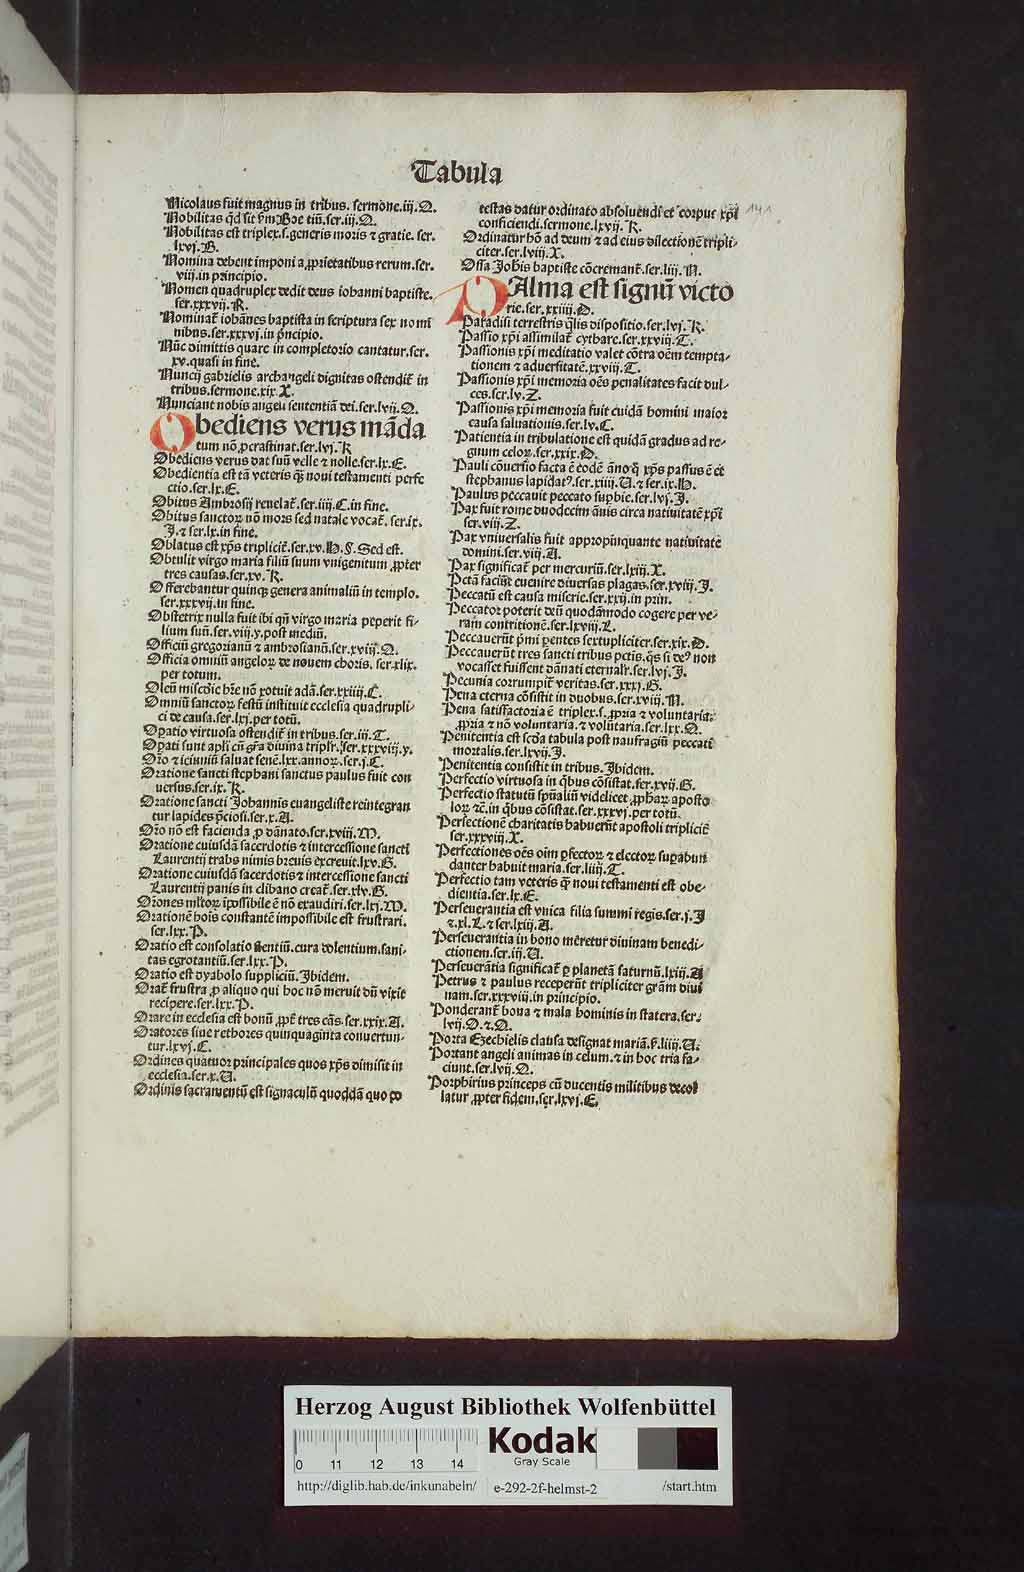 Tabula
Nicolaus fuit magnus in tribus. sermone.iij.Q.
Nobilitas qd sit ẜm Boetiū.ser.iij.Q.
Nobilitas est triplex.s.generis moris ⁊ gratie. ser.
lxvj.B.
Nomina debent imponi a ꝓprietatibus rerum.ser.
viij.in principio.
Nomen quadruplex dedit deus iohanni baptiste.
ser.xxxvij.R.
Nominat᷑ iohānes baptista in scriptura sex nomi
nibus.ser.xxxvj.in pͥncipio.
Nūc dimittis quare in completorio cantatur.ser.
xv.quasi in fine.
Nuncij gabrielis archangeli dignitas ostendit᷑ in
tribus.sermone.xix.X.
Nunciant nobis angeli sententiā dei.ser.lvij.Q.
Obediens verus māda
tum nō ꝓcrastinat.ser.lvj.R
Obediens verus dat suū velle ⁊ nolle.ser.lx.E.
Obedientia est tā veteris qꝫ noui testamenti perfe
ctio.ser.lx.E.
Obitus Ambrosij reuelat᷑.ser.iiij.C.in fine.
Obitus sanctoꝝ nō mors sed natale vocat᷑. ser.ix.
J.⁊ ser.lx.in fine.
Oblatus est xp̄s triplicit᷑.ser.xv.H.§. Sed est.
Obtulit virgo maria filiū suum vnigenitum ꝓpter
tres causas.ser.xv.R.
Offerebantur quinqꝫ genera animaliū in templo.
ser.xxxvij.in fine.
Obstetrix nulla fuit ibi qn̄ virgo maria peperit fi-
lium suū.ser.viij.y.post mediū.
Officiū gregorianū ⁊ ambrosianū.ser.xviij.Q.
Officia omniū angeloꝝ de nouem choris. ser.xlix.
per totum.
Oleū misc̄die hr̄e nō potuit adā.ser.xxiiij.C.
Omniū sanctoꝝ festū instituit ecclesia quadrupli-
ci de causa.ser.lxj.per totū.
Opatio virtuosa ostendit᷑ in tribus.ser.iij.T.
Opati sunt apl̄i cū gr̄a diuina triplr̄.ser.xxxviij.y.
Or̄o ⁊ ieiuniū saluat senē.lxx.annoꝝ.ser.j.C.
Oratione sancti stephani sanctus paulus fuit con
uersus.ser.ix.R.
Oratione sancti Johannis euangeliste reintegran
tur lapides p̄ciosi.ser.x.A.
Or̄o nō est facienda ꝓ dānato.ser.xviij.M.
Oratione cuiusdā sacerdotis ⁊ intercessione sancti
Laurentij trabs nimis breuis excreuit.lxv.G.
Oratione cuiusdā sacerdotis ⁊ intercessione sancti
Laurentij panis in clibano creat᷑.ser.xlv.G.
Or̄ones ml̄toꝝ īpossibile ē nō exaudiri.ser.lxj.M.
Orationē hoīs constantē impossibile est frustrari.
ser.lxx.P.
Oratio est consolatio flentiū.cura dolentium.sani-
tas egrotantiū.ser.lxx.P.
Oratio est dyabolo suppliciū.Jbidem.
Orat᷑ frustra ꝓ aliquo qui hoc nō meruit dū vixit
recipere.ser.lxx.P.
Orare in ecclesia est bonū ꝓpt᷑ tres cās.ser.xxix.A.
Oratores siue rethores quinquaginta conuertun-
tur.lxvj.C.
Ordines quatuor principales quos xp̄s dimisit in
ecclesia.ser.x.U.
Ordinis sacramentū est signaculū quoddā quo po
testas datur ordinato absoluendi et corpus xp̄i
conficiendi.sermone.lxvij.R.
Ordinatur hō ad deum ⁊ ad eius dilectionē tripli-
citer.ser.lviij.X.
Ossa Joh̄is baptiste cōcremant᷑.ser.liij.N.
PAlma est signū victo
rie.ser.xxiiij.D.
Paradisi terrestris q̄lis dispositio.ser.lvj.R.
Passio xp̄i assimilat᷑ cythare.ser.xxviij.T.
Passionis xp̄i meditatio valet cōtra oēm tempta-
tionem ⁊ aduersitatē.xxviij.T.
Passionis xp̄i memoria oēs penalitates facit dul-
ces.ser.lv.Z.
Passionis xp̄i memoria fuit cuidā homini maior
causa saluationis.ser.lv.C.
Patientia in tribulatione est quidā gradus ad re-
gnum celoꝝ.ser.xxix.D.
Pauli cōuersio facta ē eodē āno q̄ xp̄s passus ē et
stephanus lapidatꝰ.ser.xiiij.U.⁊ ser.ix.H.
Paulus peccauit peccato suꝑbie.ser.lvj.J.
Pax fuit rome duodecim ānis circa natiuitatē xp̄i
ser.viij.Z.
Pax vniuersalis fuit appropinquante natiuitate
domini.ser.viij.A.
Pax significat᷑ per mercuriū.ser.lxiij.X.
Pctā faciūt euenire diuersas plagas.ser.xviij.J.
Peccatū est causa miserie.ser.xxij.in prin.
Peccator poterit deū quodāmodo cogere per ve-
ram contritionē.ser.lxviij.L.
Peccauerūt pͥmi ꝑentes sextupliciter.ser.xix.D.
Peccauerūt tres sancti tribus pctis.q̄s si deꝰ non
vocasset fuissent dānati eternalr̄.ser.lvj.J.
Pecunia corrumpit᷑ veritas.ser.xxxj.G.
Pena eterna cōsistit in duobus.ser.xviij.N.
Pena satisfactoria ē triplex.s.ꝓpria ⁊ voluntaria:
ꝓpria ⁊ nō voluntaria.⁊ volūtaria.ser.lxx.Q.
Penitentia est scd̄a tabula post naufragiū peccati
mortalis.ser.lxvij.J.
Penitentia consistit in tribus.Jbidem.
Perfectio virtuosa in qͥbus cōsistat.ser.xvij.G.
Perfectio statutū spūaliū videlicet ꝓph̄aꝝ aposto
loꝝ ⁊c̄.in qͥbus cōsistat.ser.xxxvj.per totū.
Perfectionē charitatis habuerūt apostoli triplicit᷑
ser.xxxviij.X.
Perfectiones oēs oīm ꝑfectoꝝ ⁊ electoꝝ suꝑabun
danter habuit maria.ser.liiij.T.
Perfectio tam veteris qꝫ noui testamenti est obe-
dientia.ser.lx.E.
Perseuerantia est vnica filia summi regis.ser.j.J
⁊.xl.L.⁊ ser.lxiij.A.
Perseuerantia in bono meretur diuinam benedi-
ctionem.ser.iij.U.
Perseuerātia significat᷑ ꝑ planetā saturnū.lxiij.A
Petrus ⁊ paulus receperūt tripliciter grām diui
nam.ser.xxxviij.in principio.
Ponderant᷑ bona ⁊ mala hominis in statera.ser.
lvij.O.⁊.Q.
Porta Ezechielis clausa designat mariā.ẜ.liiij.U.
Portant angeli animas in celum.⁊ in hoc tria fa-
ciunt.ser.lvij.Q.
Porphirius princeps cū ducentis militibus decol
latur ꝓpter fidem.ser.lxvj.E.
141
Herzog August Bibliothek Wolfenbüttel
0 11 12 13 14
Kodak
Gray Scale
http://diglib.hab.de/inkunabeln/ e-292-2f-helmst-2 /start.htm